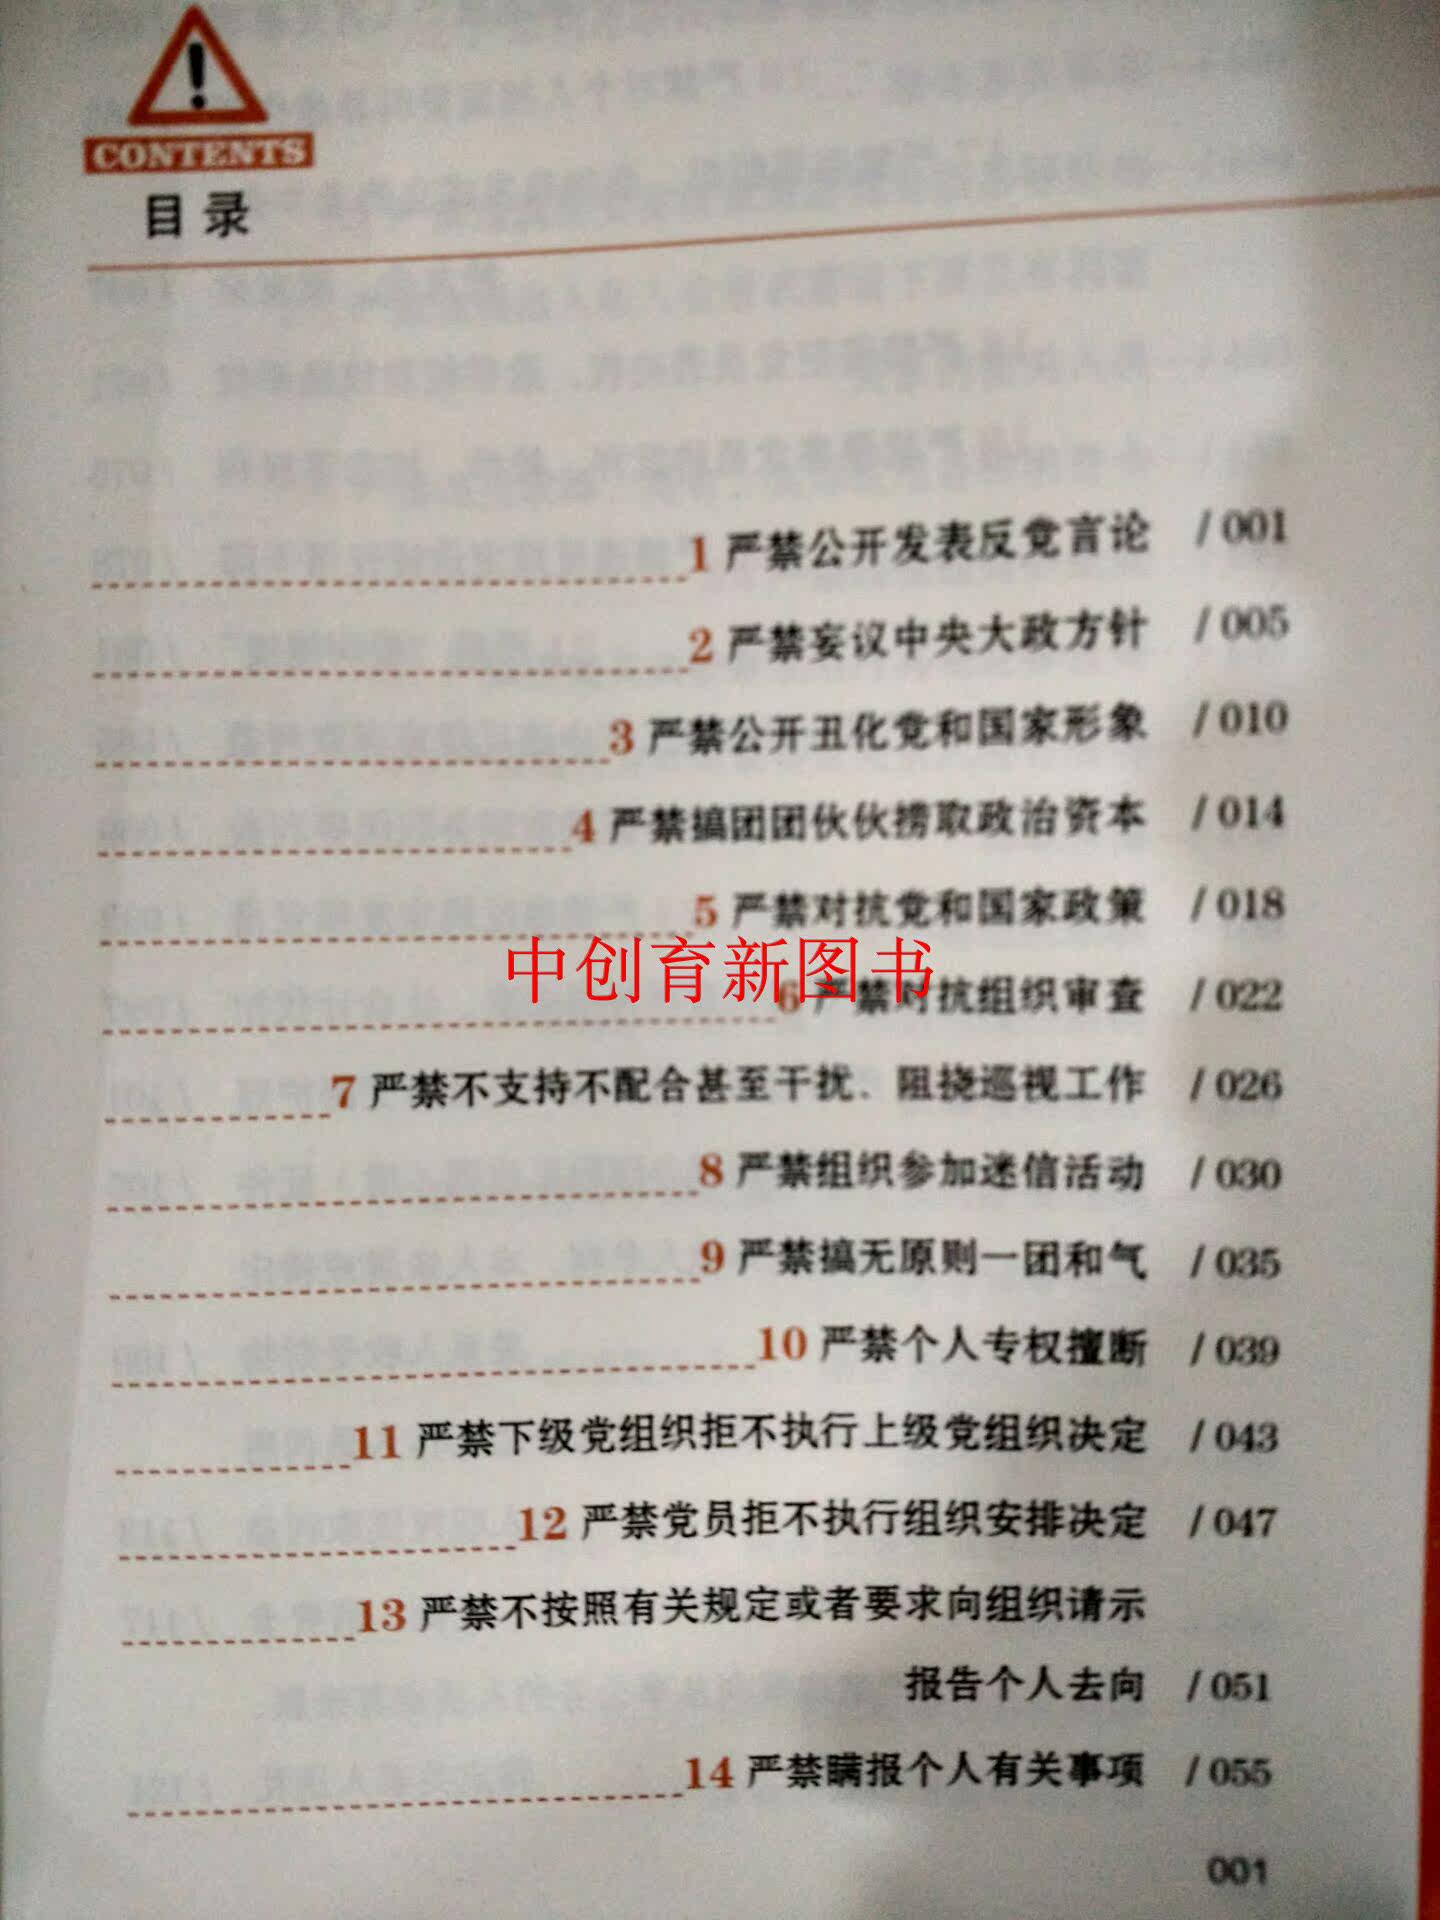 CONTENTS
目录
1 严禁公开发表反党言论 / 001
2 严禁妄议中央大政方针 / 005
3 严禁公开丑化党和国家形象 / 010
4 严禁搞团团伙伙捞取政治资本 / 014
5 严禁对抗党和国家政策 / 018
中创育新图书
6 严禁对抗组织审查 / 022
7 严禁不支持不配合甚至干扰、阻挠巡视工作 / 026
8 严禁组织参加迷信活动 / 030
9 严禁搞无原则一团和气 / 035
10 严禁个人专权擅断 / 039
11 严禁下级党组织拒不执行上级党组织决定 / 043
12 严禁党员拒不执行组织安排决定 / 047
13 严禁不按照有关规定或者要求向组织请示
报告个人去向 / 051
14 严禁瞒报个人有关事项 / 055
001